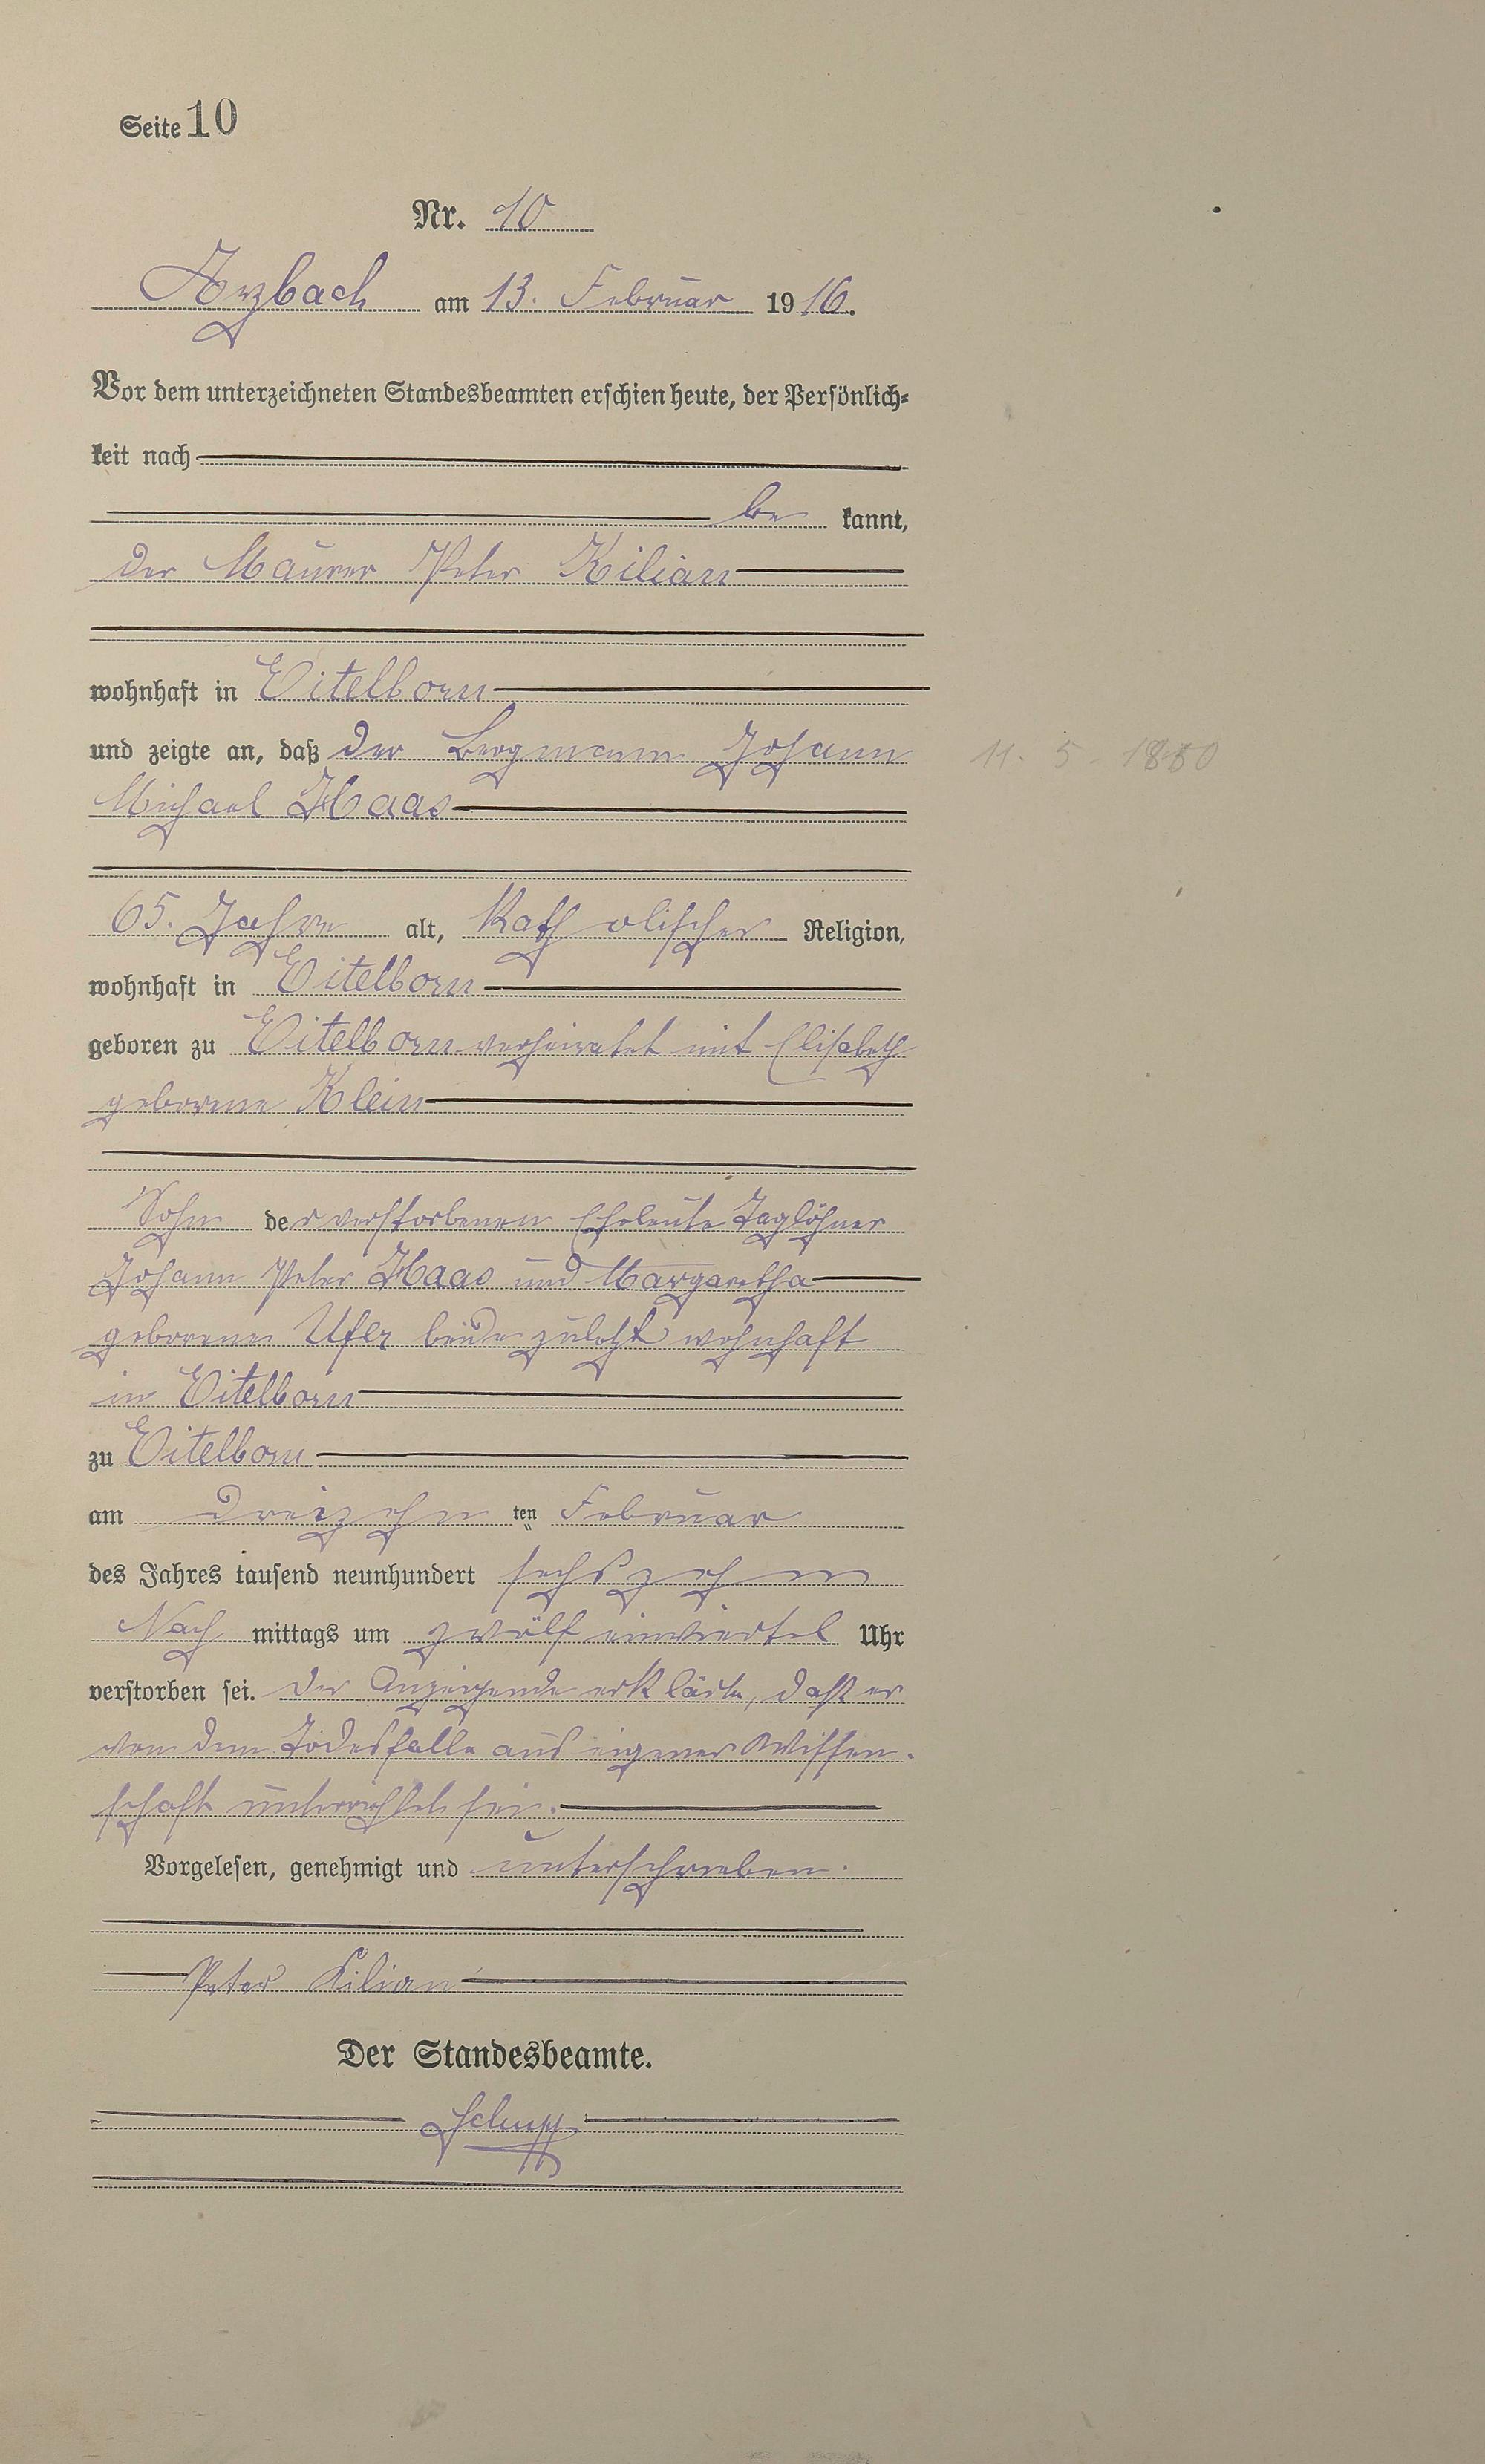 Seite 10
Nr. 10
Arzbach am 13. Februar 1916.
Vor dem unterzeichneten Standesbeamten erschien heute, der Persönlich=
keit nach
be kannt,
der Maurer Peter Kilian
wohnhaft in Eitelborn
und zeigte an, daß der Bergmann Johann
11. 5. 1850
Michael Haas
65. Jahre alt, katholischer Religion,
wohnhaft in Eitelborn
geboren zu Eitelborn verheiratet mit Elisabeth
geborene Klein
Sohn der verstorbenen Eheleute Taglöhner
Johann Peter Haas und Margaretha
geborenen Ufer beide zuletzt wohnhaft
in Eitelborn
zu Eitelborn
am dreizehn ten Februar
des Jahres tausend neunhundert sechszehn
Nach mittags um zwölf einviertel Uhr
verstorben sei. Der Anzeigende erklärte, daß er
von dem Todesfalle aus eigener Wissen-
schaft unterrichtet sei.
Vorgelesen, genehmigt und unterschrieben.
Peter Kilian
Der Standesbeamte.
Schupp